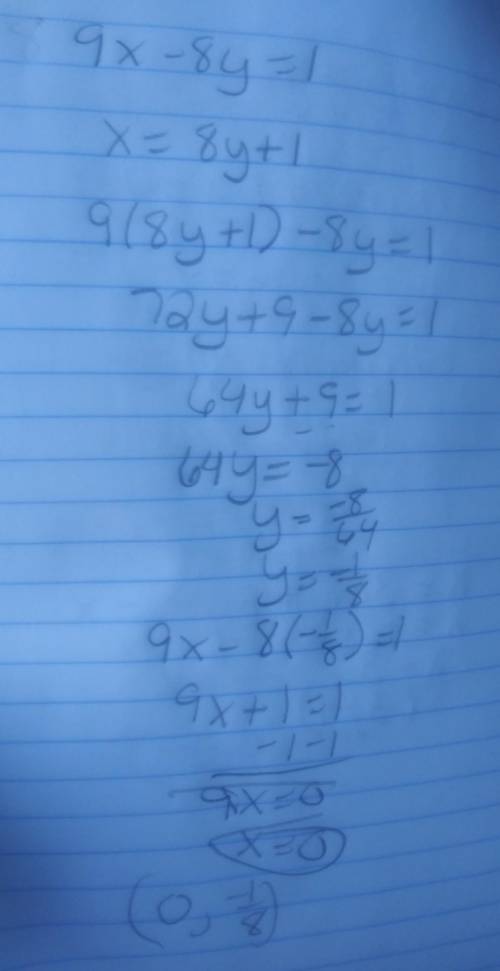 9x - 8y = 1
x = 8y + 1
9(8y + 1) - 8y = 1
72y + 9 - 8y = 1
64y + 9 = 1
64y = -8
y = -8/64
y = -1/8
9x - 8(-1/8) = 1
9x + 1 = 1
-1 -1
9x = 0
x = 0
(0, -1/8)